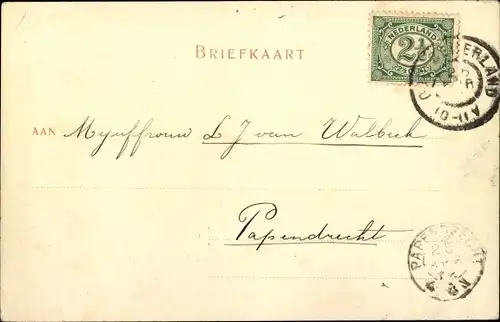 BRIEFKAART
NEDERLAND
2½
CENT
AAN Mejuffrouw L J van Walbeek
Papendrecht
PAPENDRECHT